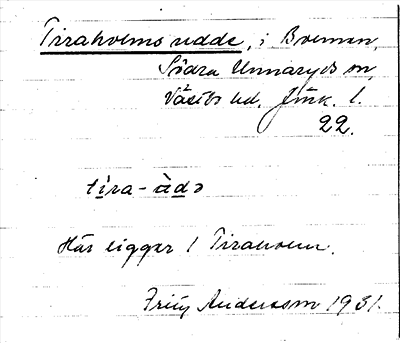 Tiraholms udde, i Bolmen,
Södra Unnaryds sn,
Västbo hd. Jönk. l.
22.
tira-ùdə
Här ligger 1 Tiraholm.
Frity Andersson 1931.